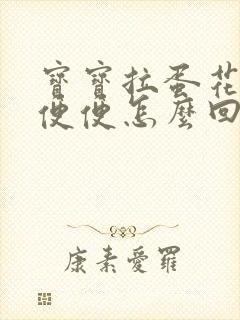 寶寶拉蛋花
便便怎麼回
康素愛羅